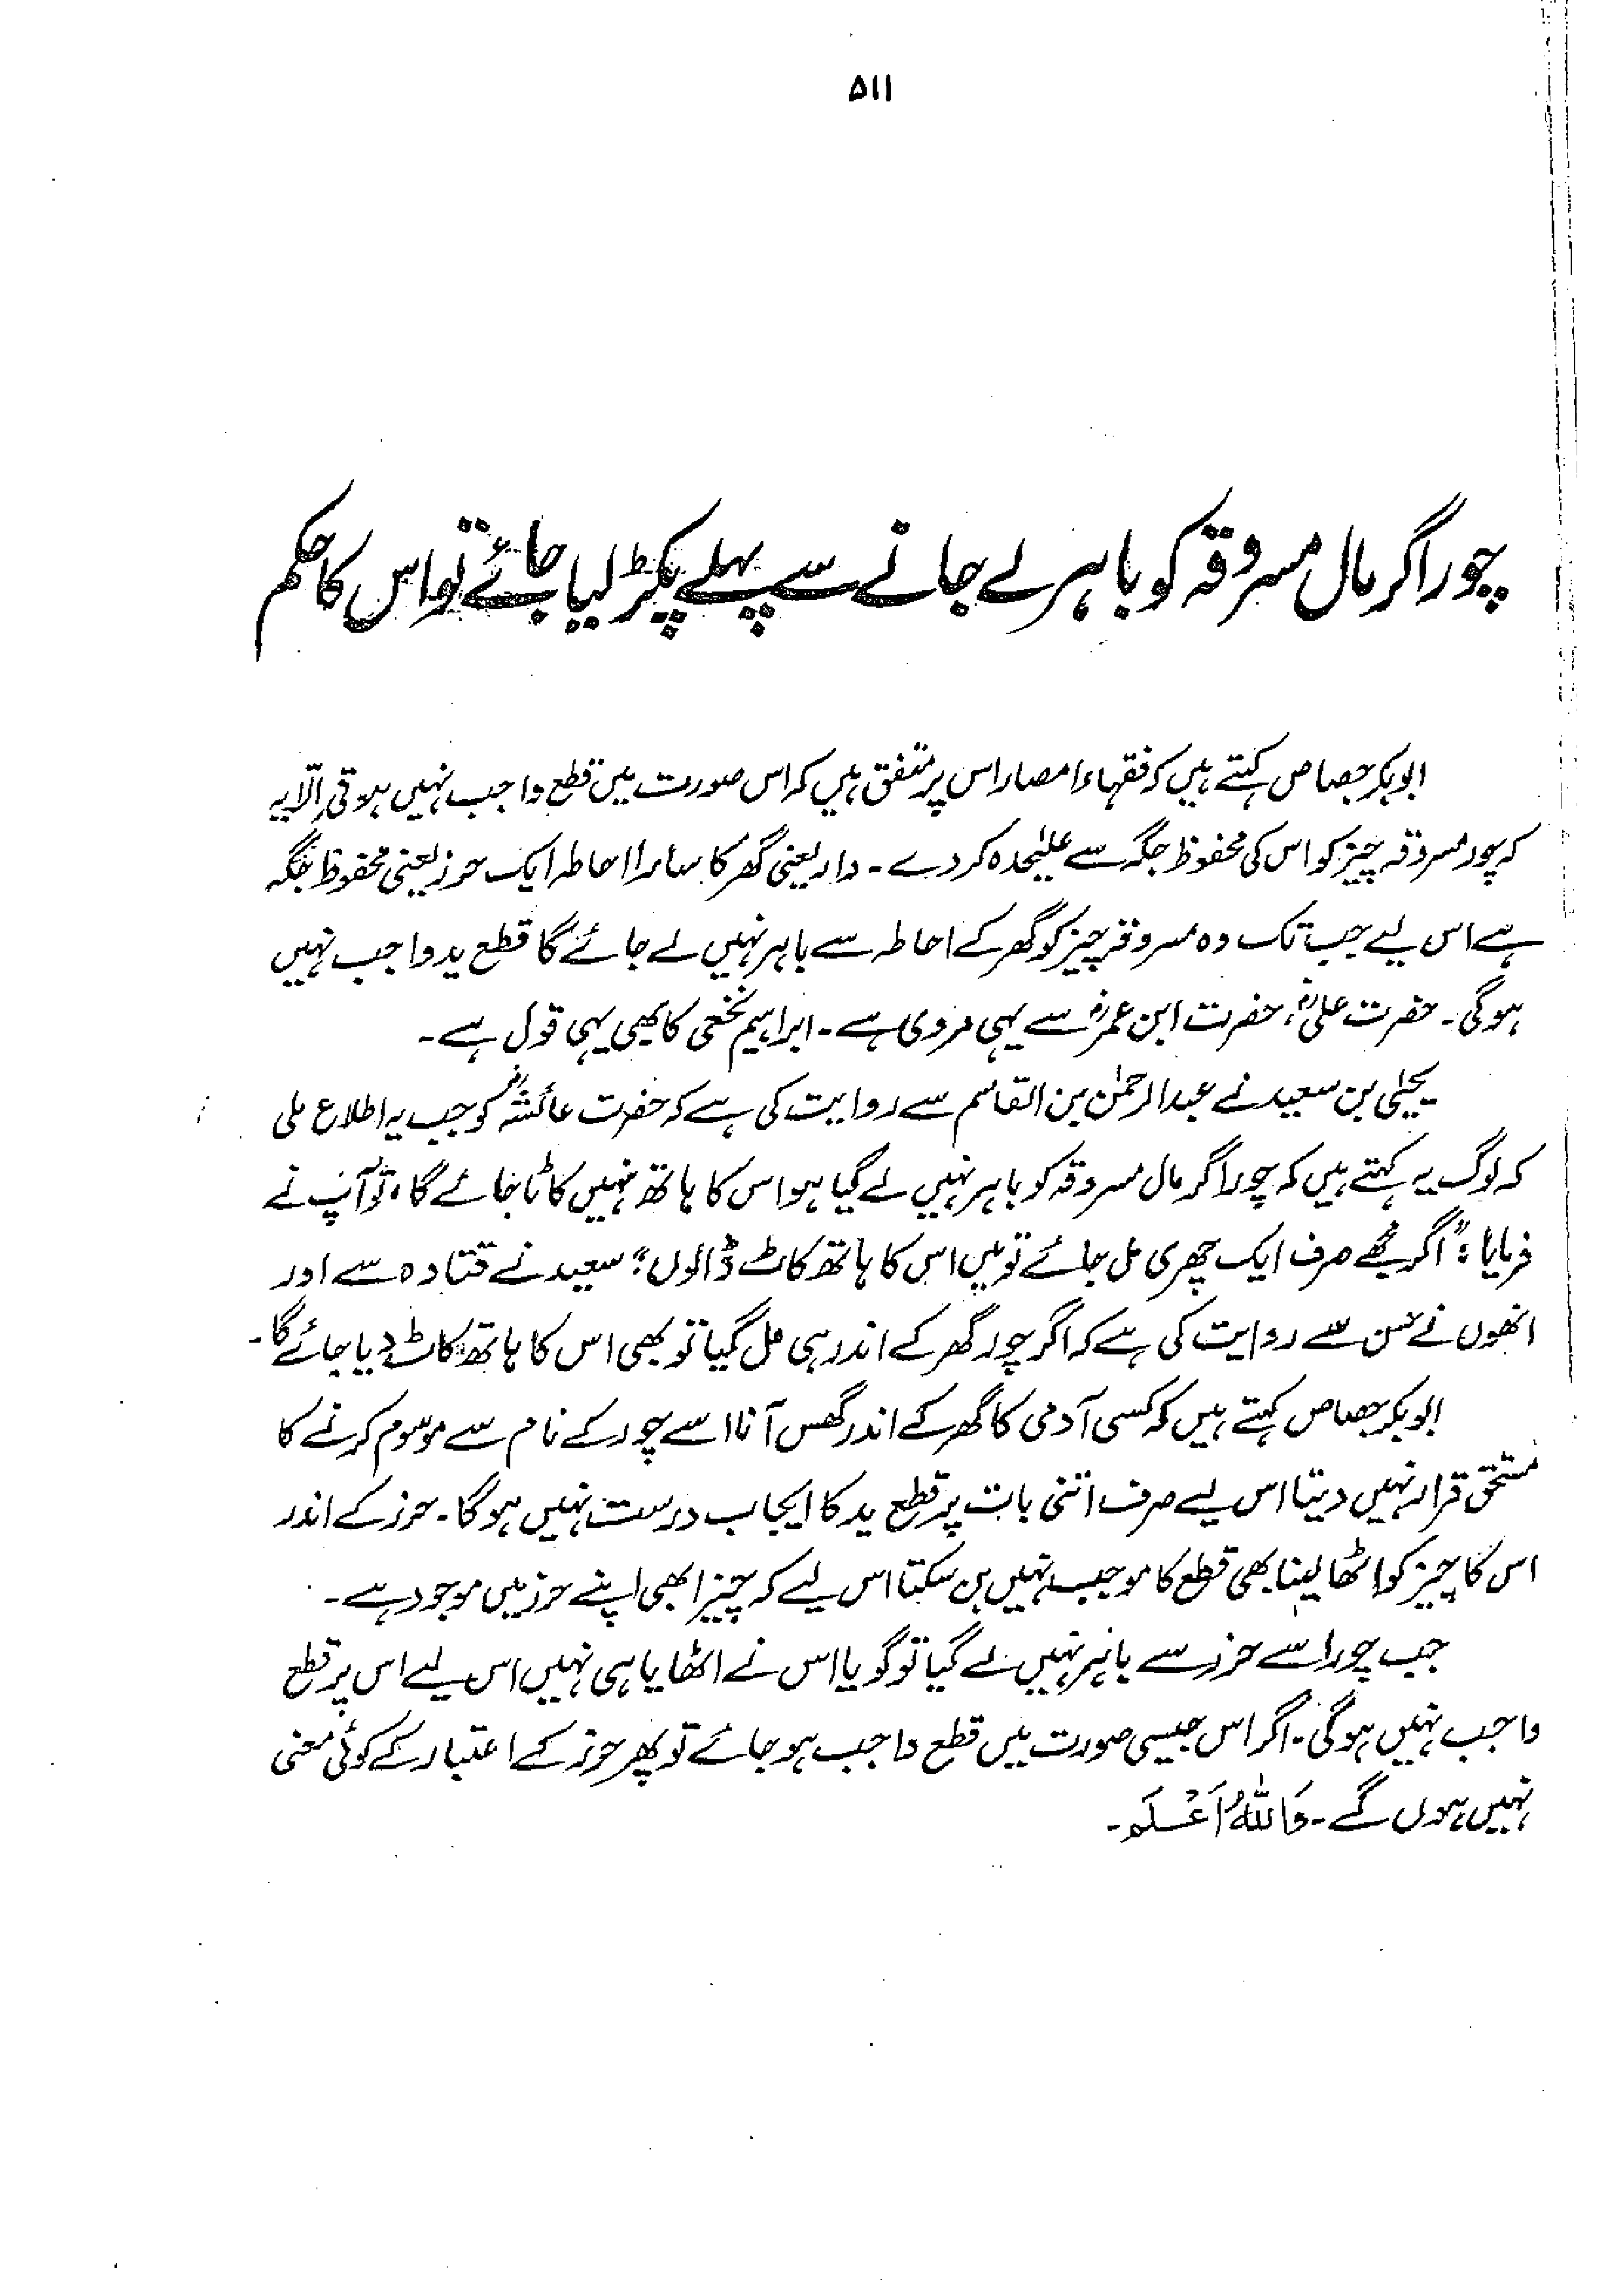 ۵۱۱
چور اگر مال مسروقہ کو باہر لے جانے سے پہلے پکڑ لیا جائے تو اس کا حکم
ابوبکر جصاص کہتے ہیں کہ فقہاء امصار اس پر متفق ہیں کہ اس صورت میں قطع واجب نہیں ہوتی اِلّا یہ
کہ چور مسروقہ چیز کو اس کی محفوظ جگہ سے علیٰحدہ کر دے۔ دار یعنی گھر کا سارا احاطہ ایک حرز یعنی محفوظ جگہ
ہے اس لیے جب تک وہ مسروقہ چیز کو گھر کے احاطہ سے باہر نہیں لے جائے گا قطع ید واجب نہیں
ہوگی۔ حضرت علیؓ، حضرت ابن عمرؓ سے یہی مروی ہے۔ ابراہیم نخعی کا بھی یہی قول ہے۔
یحییٰ بن سعید نے عبدالرحمٰن بن القاسم سے روایت کی ہے کہ حضرت عائشہؓ کو جب یہ اطلاع ملی
کہ لوگ یہ کہتے ہیں کہ چور اگر مال مسروقہ کو باہر نہیں لے گیا ہو اس کا ہاتھ نہیں کاٹا جائے گا، تو آپ نے
فرمایا: "اگر مجھے صرف ایک چھری مل جائے تو میں اس کا ہاتھ کاٹ ڈالوں" سعید نے قتادہ سے اور
انھوں نے حسن سے روایت کی ہے کہ اگر چور گھر کے اندر ہی مل گیا تو بھی اس کا ہاتھ کاٹ دیا جائے گا۔
ابوبکر جصاص کہتے ہیں کہ کسی آدمی کا گھر کے اندر گھس آنا اسے چور کے نام سے موسوم کرنے کا
مستحق قرار نہیں دیتا اس لیے صرف اتنی بات پر قطع ید کا ایجاب درست نہیں ہوگا۔ حرز کے اندر
اس کا چیز کو اٹھا لینا بھی قطع کا موجب نہیں بن سکتا اس لیے کہ چیز ابھی اپنے حرز میں موجود ہے۔
جب چور اسے حرز سے باہر نہیں لے گیا تو گویا اس نے اٹھایا ہی نہیں اس لیے اس پر قطع
واجب نہیں ہوگی۔ اگر اس جیسی صورت میں قطع واجب ہو جائے تو پھر حرز کے اعتبار کے کوئی معنی
نہیں ہوں گے۔ وَاللّٰہُ اَعْلَم۔